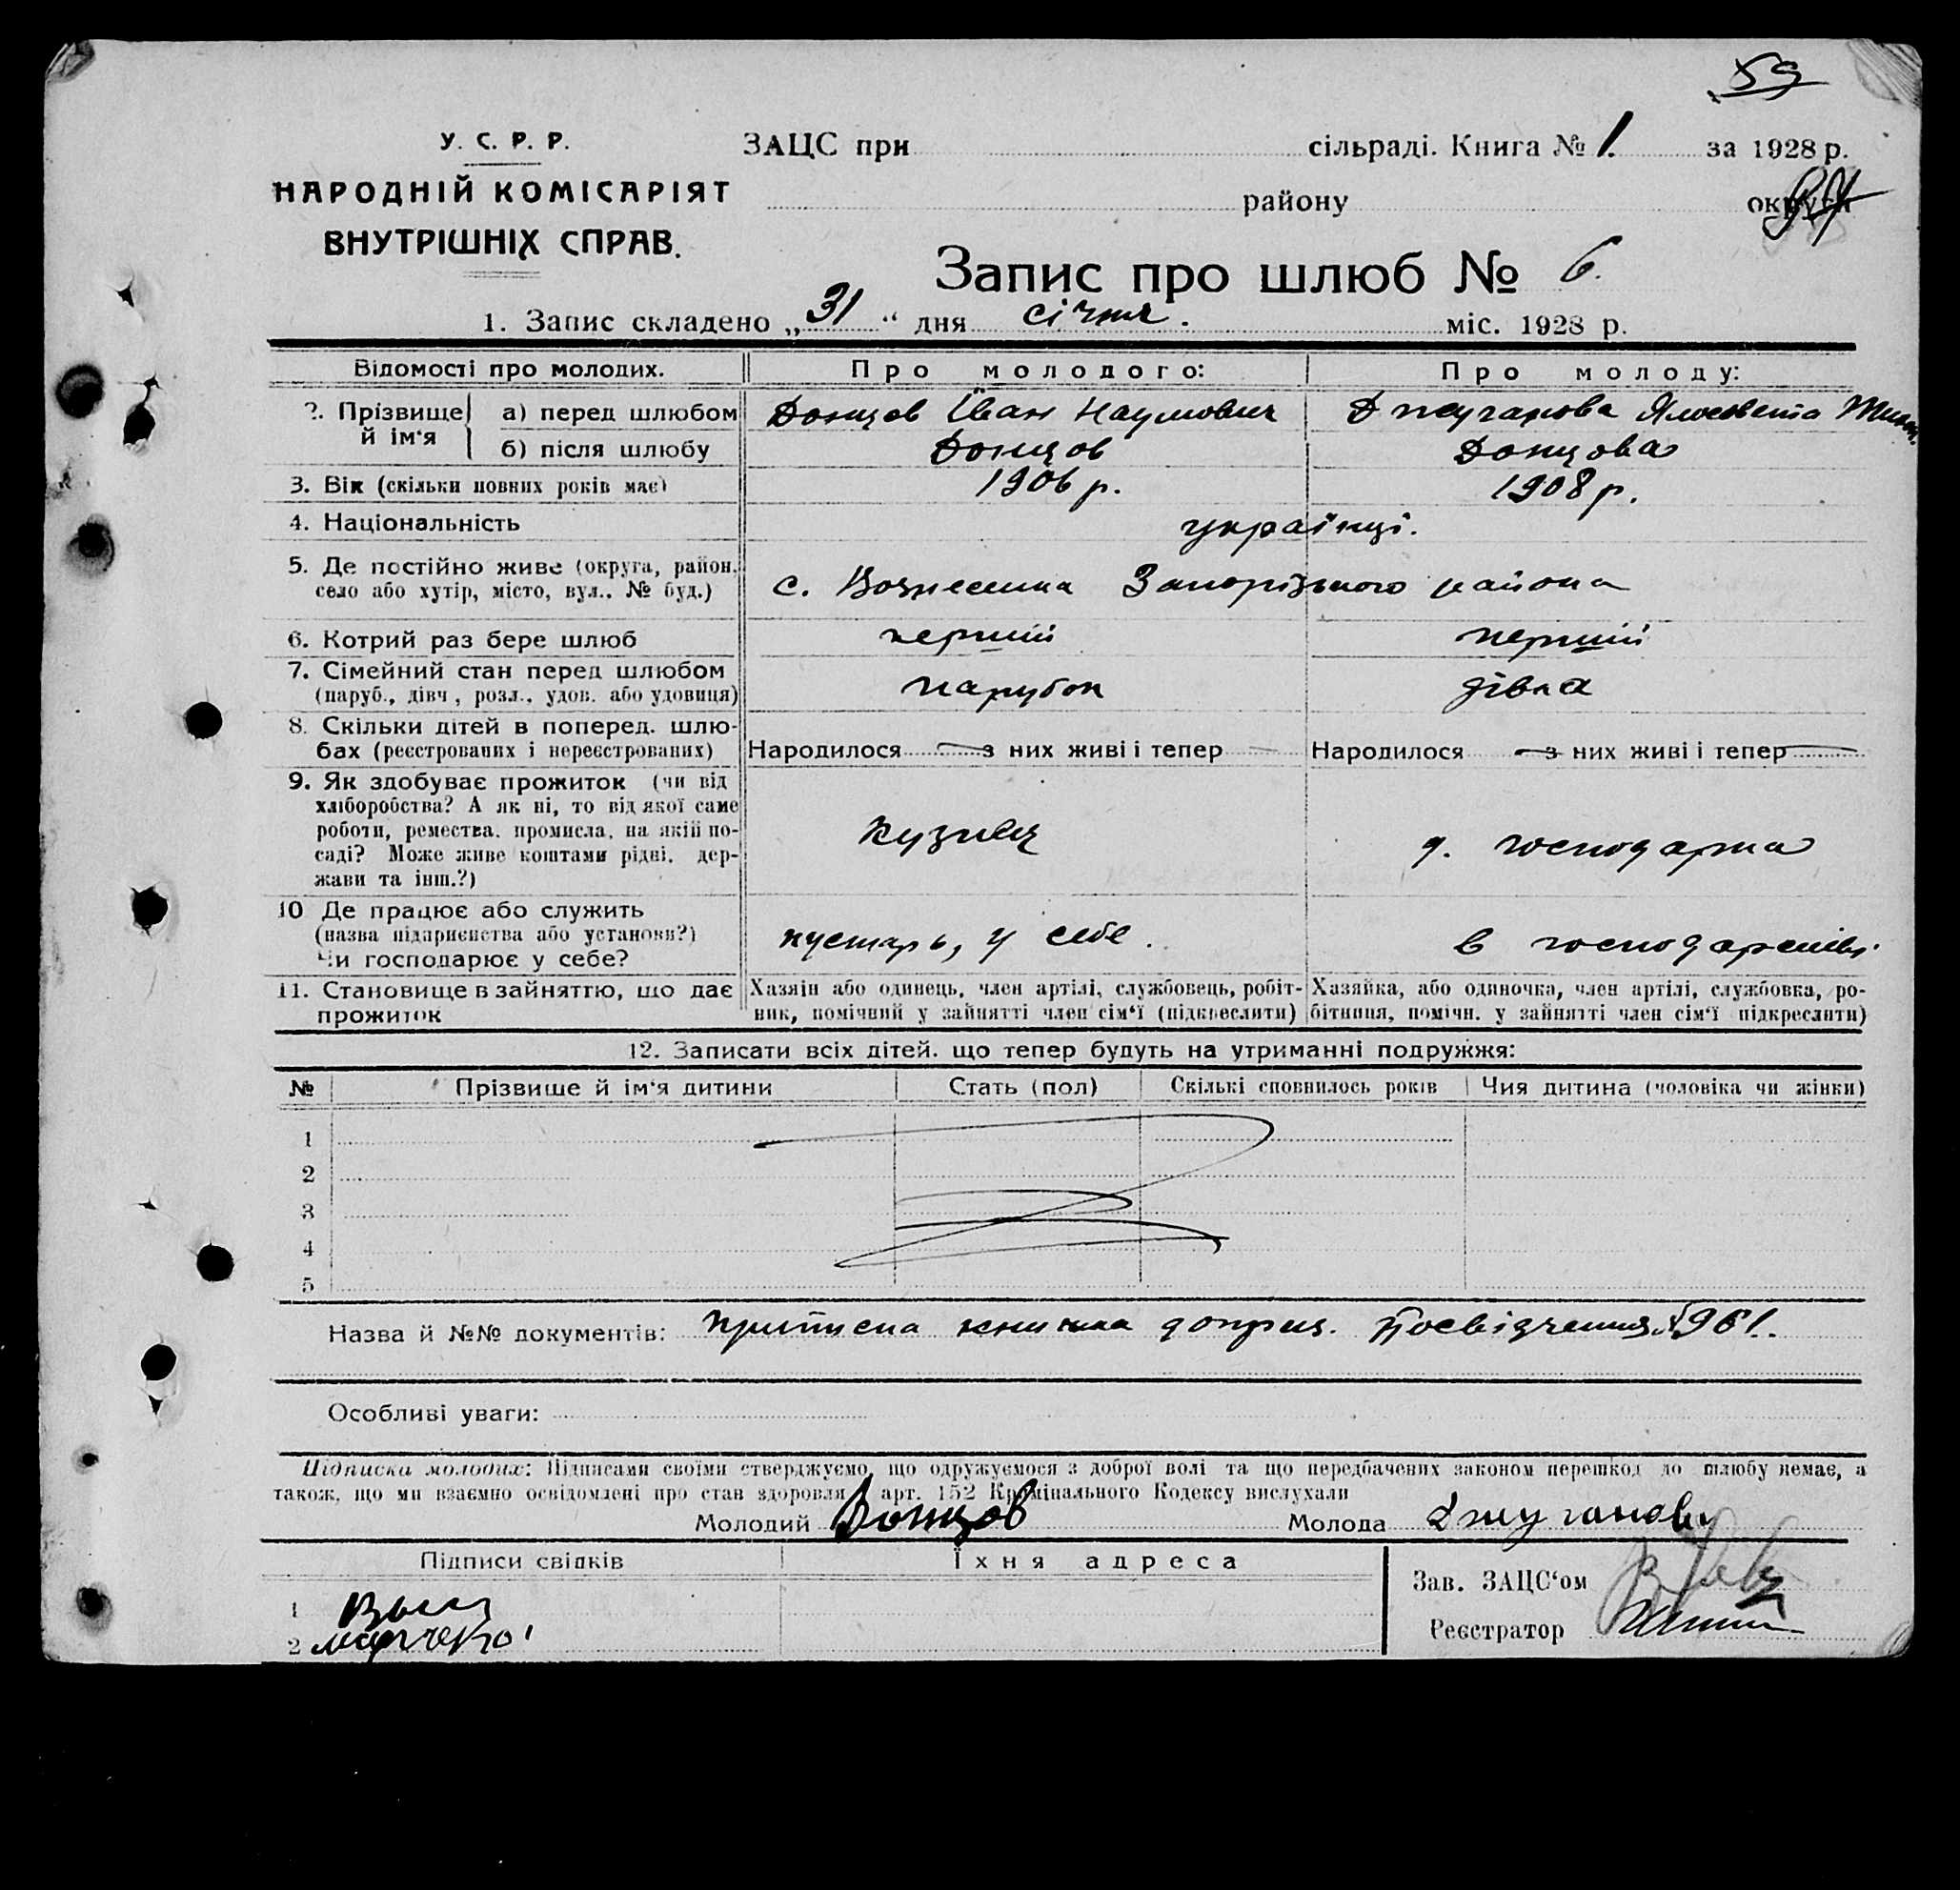 59
У. С. Р. Р.
НАРОДНІЙ КОМІСАРІЯТ
ВНУТРІШНІХ СПРАВ.
ЗАЦС при сільраді. Книга № 1. за 1928 р.
району округи
Запис про шлюб № 6.
1. Запис складено „31“ дня січня. міс. 1928 р.
Відомості про молодих. Про молодого: Про молоду:
2. Прізвище й ім‘я
а) перед шлюбом Донцов Іван Наумович Джуганова
б) після шлюбу Донцов Донцова
3. Вік (скільки повних років має) 1906 р. 1908 р.
4. Національність українці.
5. Де постійно живе (округа, район, село або хутір, місто, вул., № буд.) с. Вознесенка Запорізького района
6. Котрий раз бере шлюб перший перший
7. Сімейний стан перед шлюбом (паруб., дівч., розл., удов. або удовиця) парубок дівка
8. Скільки дітей в поперед. шлюбах (реєстрованих і нереєстрованих) Народилося — з них живі і тепер — Народилося — з них живі і тепер —
9. Як здобуває прожиток (чи від хліборобства? А як ні, то від якої саме роботи, ремества, промисла, на якій посаді? Може живе коштами рідні, держави та інш.?) кузнец д. господарка
10 Де працює або служить (назва підприємства або установи?) Чи господарює у себе? кустарь, у себе. в господарстві.
11. Становище в зайняттю, що дає прожиток Хазяїн або одинець, член артілі, службовець, робітник, помічний у зайнятті член сім‘ї (підкреслити) Хазяйка, або одиночка, член артілі, службовка, робітниця, помічн. у зайнятті член сім‘ї підкреслити)
12. Записати всіх дітей, що тепер будуть на утриманні подружжя:
№ Прізвище й ім‘я дитини Стать (пол) Скількі сповнилось років Чия дитина (чоловіка чи жінки)
1
2
3
4
5
Назва й №№ документів: приписна книжка доприз. Посвідчення 961.
Особливі уваги:
Підписка молодих: Підписами своїми стверджуємо, що одружуємося з доброї волі та що передбачених законом перешкод до шлюбу немає, а
також, що ми взаємно освідомлені про стан здоровля і арт. 152 Кримінального Кодексу вислухали
Молодий Донцов Молода Джуганова
Підписи свідків Їхня адреса
Зав. ЗАЦС‘ом
1
2
Реєстратор